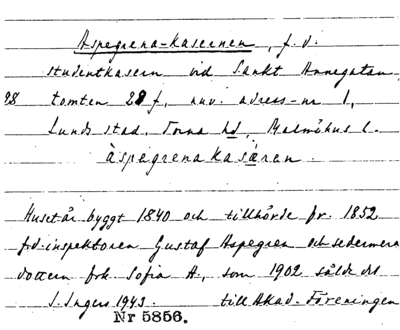 Aspegrena-kasernen, f.d.
studentkasern vid Sankt Annegatan,
28 tomten 28 f, nuv. adress-nr 1,
Lunds stad, Torna hd, Malmöhus l.
àspegrenakasæren.
Huset är byggt 1840 och tillhörde fr. 1852
fd-inspektoren Gustaf Aspegren och sedermera
dottern frk Sofia A., som 1902 sålde det
S. Ingers 1943. till Akad.-Föreningen
Nr 5856.